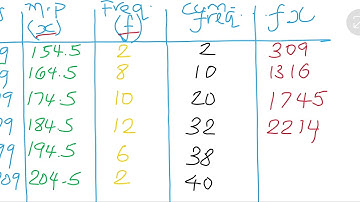 m.p Freq. Cum. fx
(x) (f) freq.
9 154.5 2 2 309
9 164.5 8 10 1316
99 174.5 10 20 1745
99 184.5 12 32 2214
99 194.5 6 38
209 204.5 2 40